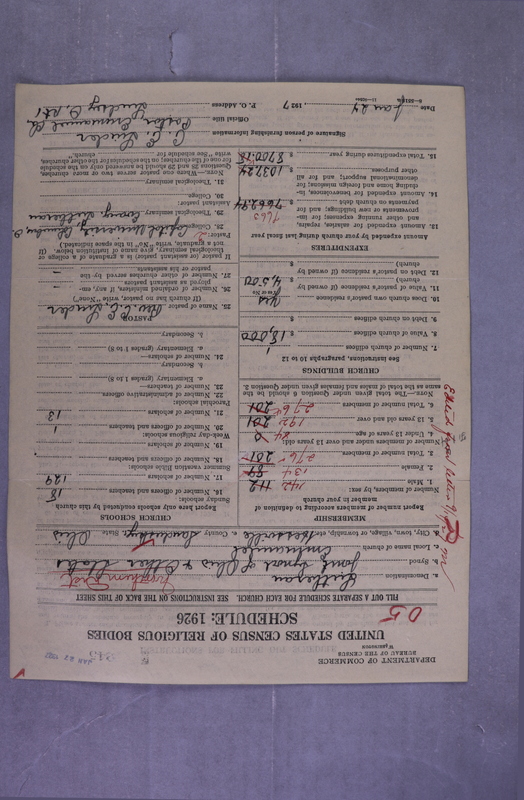 DEPARTMENT OF COMMERCE
BUREAU OF THE CENSUS
WASHINGTON
JAN 28 1927
UNITED STATES CENSUS OF RELIGIOUS BODIES
SCHEDULE: 1926
FILL OUT A SEPARATE SCHEDULE FOR EACH CHURCH. SEE INSTRUCTIONS ON THE BACK OF THIS SHEET
a. Denomination Lutheran
b. Synod Joint Synod of Ohio & Other States
c. Local name of church Emmanuel
d. City, town, village, or township, etc. e. County Sandusky State Ohio
MEMBERSHIP
Report here according to definition of
member in your church
Number of members, by sex:
1. Male 142 112
2. Female 134 89
3. Total number of members 276 201
Number of members under and over 13 years old:
4. Under 13 years of age 84 0
5. 13 years old and over 192 201
6. Total number of members 276 201
NOTE.—The total given under Question 6 should be the
same as the total of males and females given under Question 3.
CHURCH BUILDINGS
See instructions, paragraphs 10 to 12
7. Number of church edifices 1
8. Value of church edifices $ 18,000
9. Debt on church edifices $
10. Does church own pastor's residence yes
(Yes or No)
11. Value of pastor's residence (if owned by
church) $ 4,500
12. Debt on pastor's residence (if owned by
church) $
EXPENDITURES
Amount expended by your church during last fiscal year
13. Amount expended for salaries, repairs,
and other running expenses; for im-
provements or new buildings; and for
payments on church debt $ 7662.94
7663
14. Amount expended for benevolences, in-
cluding home and foreign missions; for
denominational support; and for all
other purposes $ 1037.24
15. Total expenditures during year $ 8700.18
CHURCH SCHOOLS
Report here only schools conducted by this church
Sunday schools:
16. Number of officers and teachers 18
17. Number of scholars 129
Summer vacation Bible schools:
18. Number of officers and teachers
19. Number of scholars
Week-day religious schools:
20. Number of officers and teachers 1
21. Number of scholars 13
Parochial schools:
22. Number of administrative officers
23. Number of teachers—
a. Elementary (grades 1 to 8)
b. Secondary
24. Number of scholars—
a. Elementary (grades 1 to 8)
b. Secondary
PASTOR
25. Name Rev. C. C. Linder
(If church has no pastor, write "None")
26. Number of ordained ministers, if any, em-
ployed as assistant pastors
27. Number of other churches served by the
pastor or his assistants
If pastor (or assistant pastor) is a graduate of a college or
theological seminary, give name of institution. (If
not a graduate, write "No" in the space indicated.)
Pastor:
28. College Capital University Columbus O
29. Theological seminary
Assistant pastor:
30. College
31. Theological seminary
NOTE.—Where one pastor serves two or more churches,
Questions 28 and 29 should be answered only on the schedule
for one of the churches; on the schedules for the other churches,
write "See schedule for church".
Signature of person furnishing information C. C. Linder
Official title Pastor Emmanuel Ch.
P. O. Address Lindsey O. Rt 1
Date Jan 24 1927